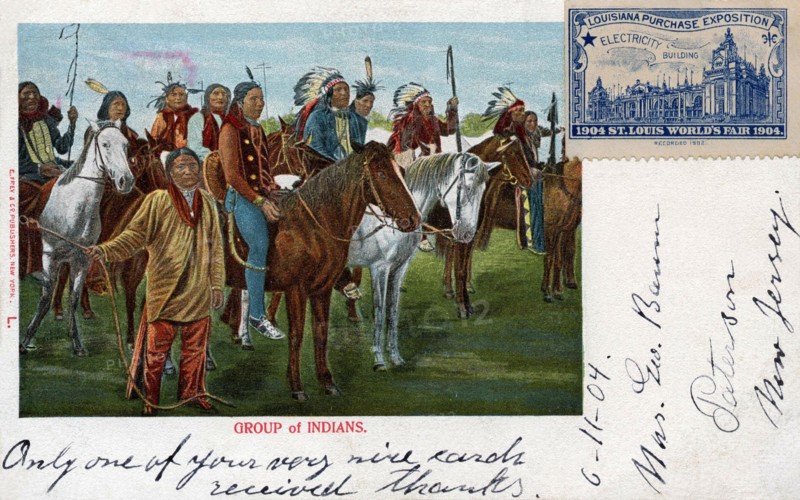 LOUISIANA PURCHASE EXPOSITION
ELECTRICITY
BUILDING
1904 ST. LOUIS WORLD'S FAIR 1904.
RECORDED 1902.
PUBLISHERS, NEW YORK.
L.
GROUP of INDIANS.
Only one of your very nice cards
received thanks.
6-11-04.
Mrs. Geo. Baum
Paterson
New Jersey.